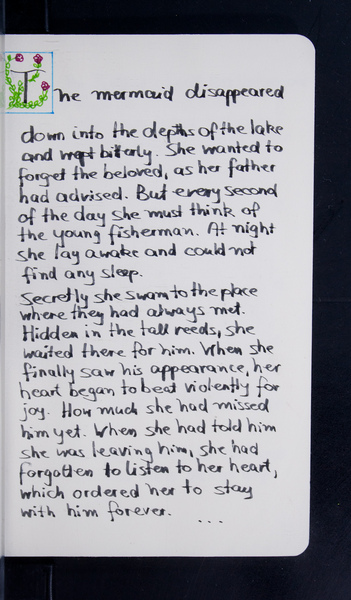 The mermaid disappeared
down into the depths of the lake
and wept bitterly. She wanted to
forget the beloved, as her father
had advised. But every second
of the day she must think of
the young fisherman. At night
she lay awake and could not
find any sleep.
Secretly she swam to the place
where they had always met.
Hidden in the tall reeds, she
waited there for him. When she
finally saw his appearance, her
heart began to beat violently for
joy. How much she had missed
him yet. When she had told him
she was leaving him, she had
forgotten to listen to her heart,
which ordered her to stay
with him forever.
...